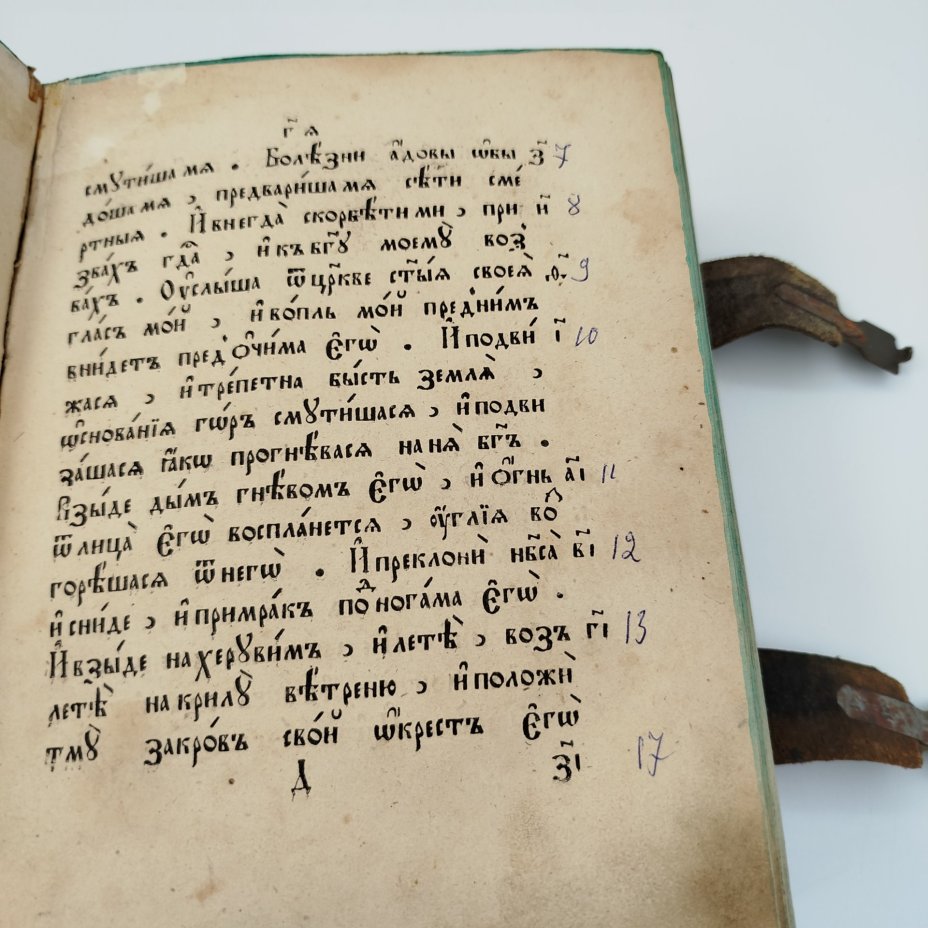 г҃ѧ
смꙋти́ша мѧ . Болѣ́зни а҆́довы ѡ҆бы з҃ 7
до́ша мѧ , предвари́ша мѧ сѣ́ти сме́
ртныѧ . И҆ внегда̀ скорбѣ́ти ми , при и҃ 8
зва́хъ гдⷭ҇а , и҆ къ бг҃ꙋ моемꙋ̀ воз̾
ва́хъ . Оу҆слы́ша ѿ цр҃кве ст҃ы́ѧ своеѧ̀ .ѳ҃. 9
гла́съ мо́й , и҆ во́пль мо́й пред̾ни́мъ
вни́детъ пред̾ о҆чи́ма є҆гѡ̀ . И҆ подви́ і҃ 10
жасѧ , и҆ тре́петна бы́сть землѧ̀ ,
ѡ҆снова́нїѧ гѡ́ръ смꙋти́шасѧ , и҆ подви
за́шасѧ ꙗ҆́кѡ прогнѣ́васѧ на нѧ̀ бг҃ъ .
Взы́де ды́мъ гнѣ́вомъ є҆гѡ̀ , и҆ о҆́гнь а҃і 11
ѿ лица̀ є҆гѡ̀ воспла́нетсѧ , оу҆́глїѧ во
горѣ́шасѧ ѿ негѡ̀ . И҆ преклонѝ нб҃са̀ в҃і 12
и҆ сни́де , и҆ примра́къ поⷣ нога́ма є҆гѡ̀ .
И҆ взы́де на херꙋви́мъ , и҆ летѣ̀ , возъ г҃і 13
летѣ̀ на крилꙋ̀ вѣ́треню , и҆ положѝ
тмꙋ̀ закро́въ сво́й ѡ҆́крестъ є҆гѡ̀
Д з҃і 17